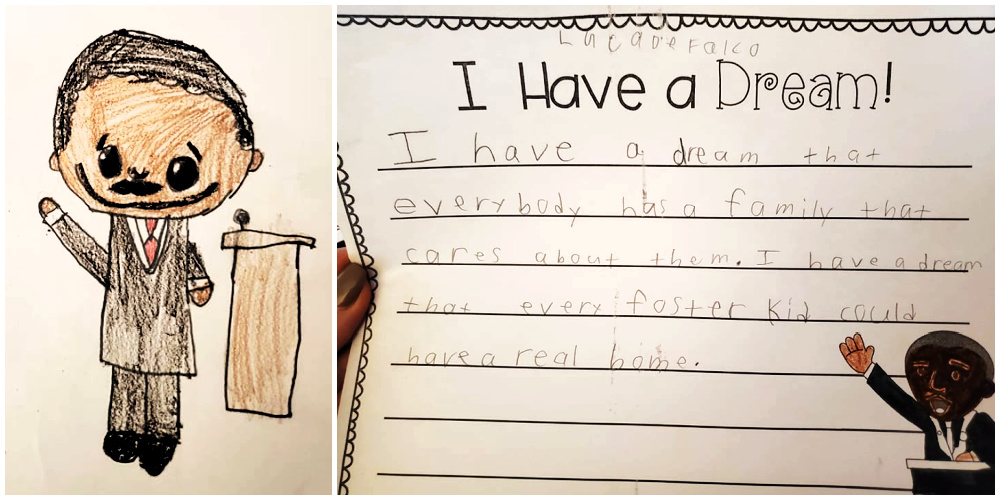 Luca DeFalco
I Have a Dream!
I have a dream that
everybody has a family that
cares about them. I have a dream
that every foster kid could
have a real home.